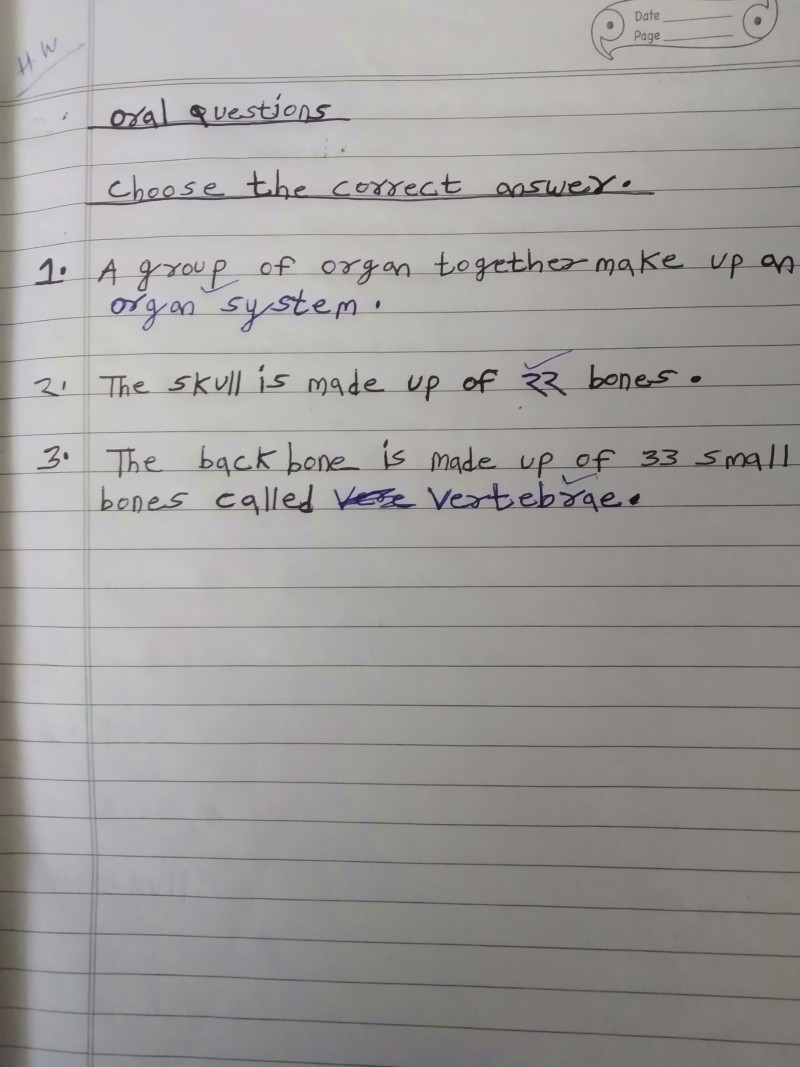 Date
Page
H.W
oral questions
choose the correct answer.
1. A group of organ together make up an
organ system.
2. The skull is made up of 22 bones.
3. The back bone is made up of 33 small
bones called Vertebrae.